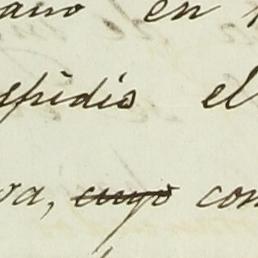 ano en
spidió el
va, cuyo con